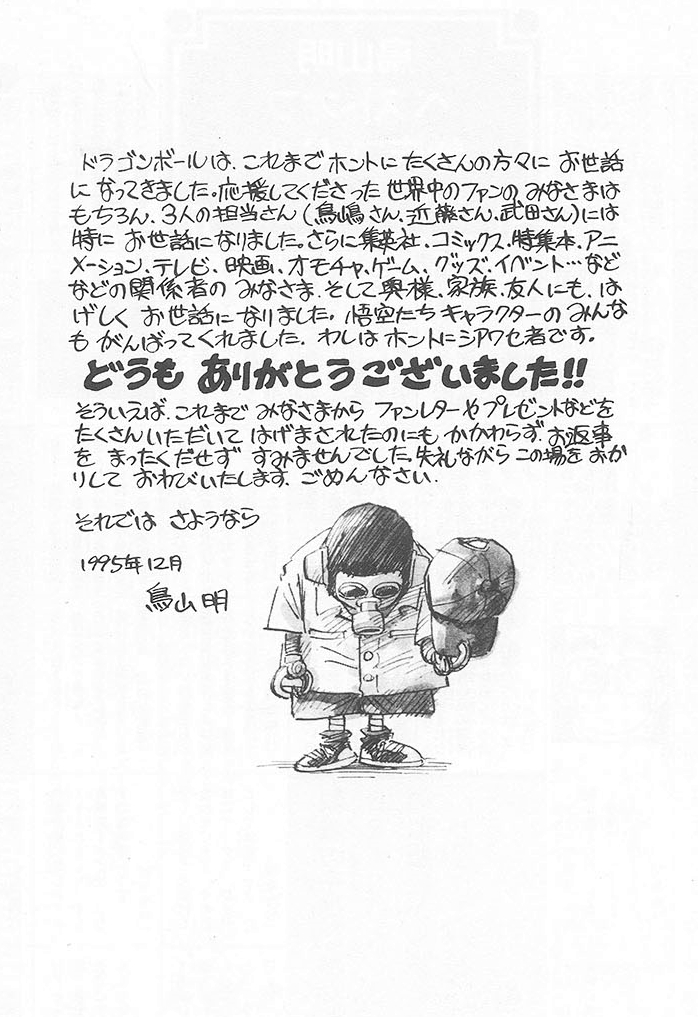 ドラゴンボールは、これまでホントにたくさんの方々に お世話
になってきました。応援してくださった世界中のファンのみなさまは
もちろん、3人の担当さん(鳥嶋さん、近藤さん、武田さん)には
特に お世話になりました。さらに集英社、コミックス、特集本、アニ
メーション、テレビ、映画、オモチャ、ゲーム、グッズ、イベント…など
などの関係者の みなさま、そして奥様、家族、友人にも、は
げしく お世話になりました。悟空たちキャラクターのみんな
も がんばってくれました。わしはホントにシアワセ者です。
どうも ありがとうございました!!
そういえば、これまで みなさまから ファンレターやプレゼントなどを
たくさんいただいて はげまされたのにも かかわらず、お返事
を まったくだせず すみませんでした。失礼ながら この場を おか
りして おわびいたします。ごめんなさい。
それでは さようなら
1995年12月
鳥山明